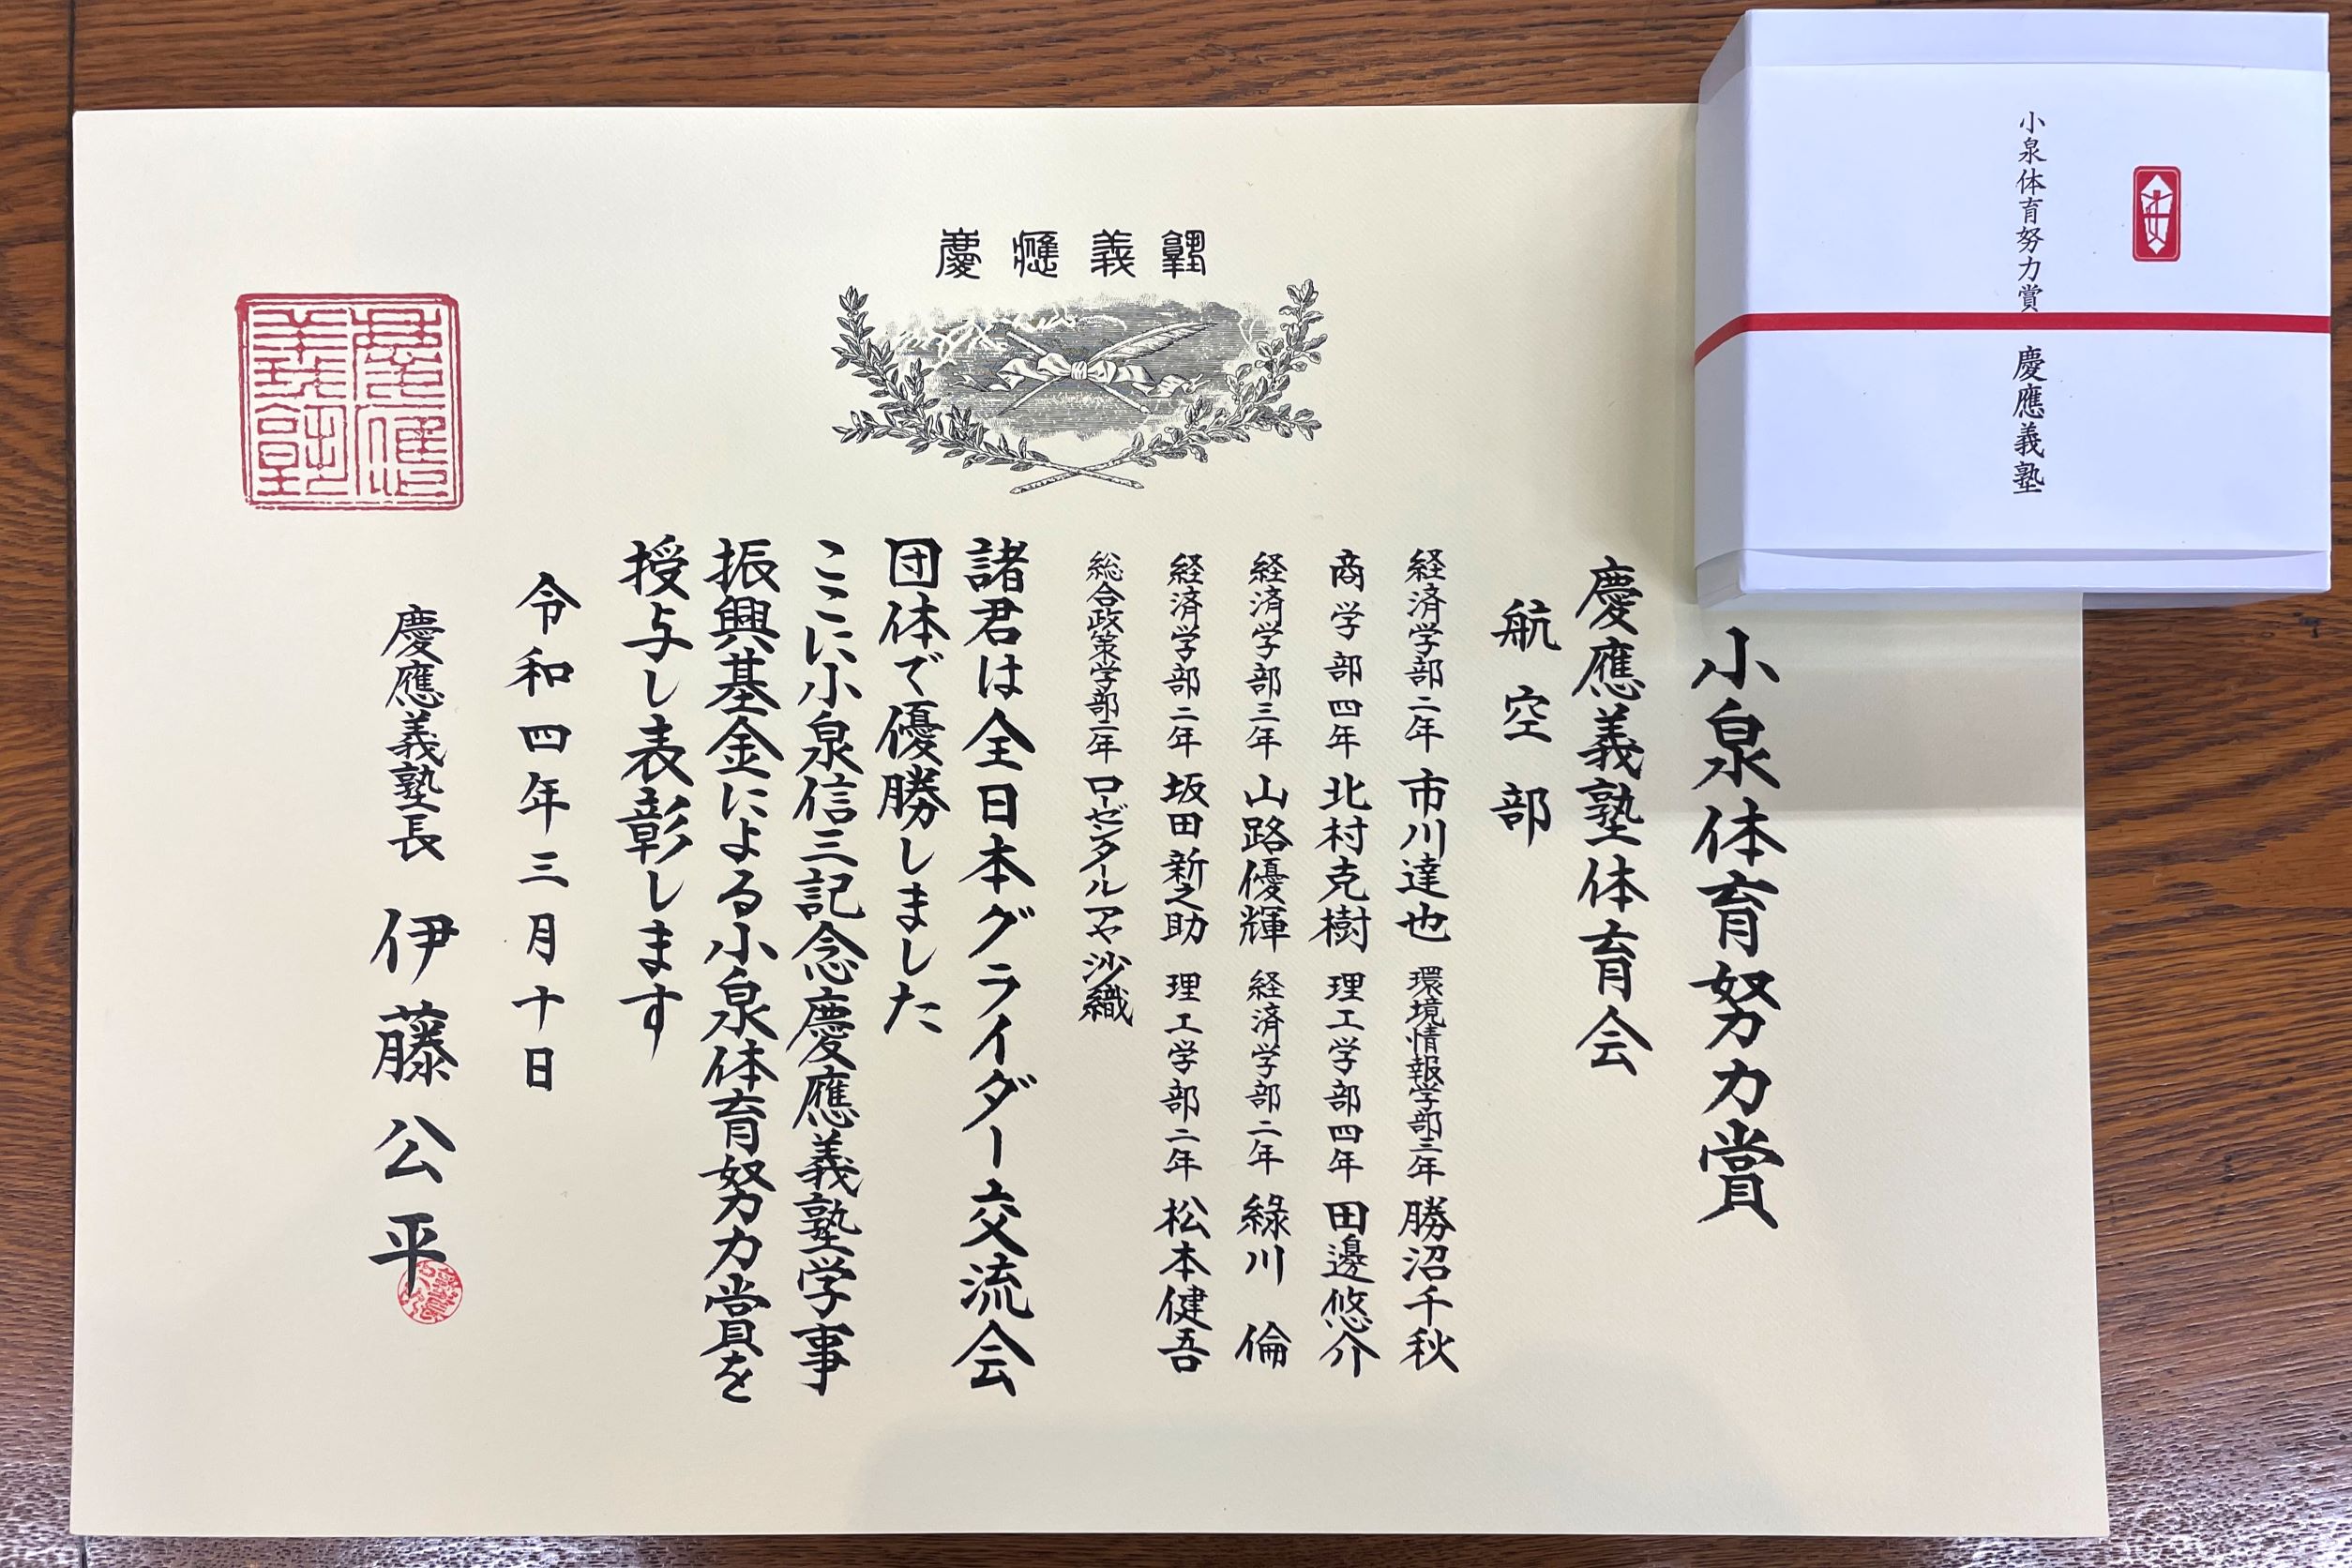 慶應義塾
小泉体育努力賞
慶應義塾体育会
航空部
経済学部二年 市川達也 環境情報学部三年 勝沼千秋
商学部四年 北村克樹 理工学部四年 田邊悠介
経済学部三年 山路優輝 経済学部二年 綠川倫
経済学部二年 坂田新之助 理工学部二年 松本健吾
総合政策学部二年 ローゼンタールアヤ沙織
諸君は全日本グライダー交流会
団体で優勝しました
ここに小泉信三記念慶應義塾学事
振興基金による小泉体育努力賞を
授与し表彰します
令和四年三月十日
慶應義塾長 伊藤公平
慶應義塾
小泉体育努力賞
慶應義塾